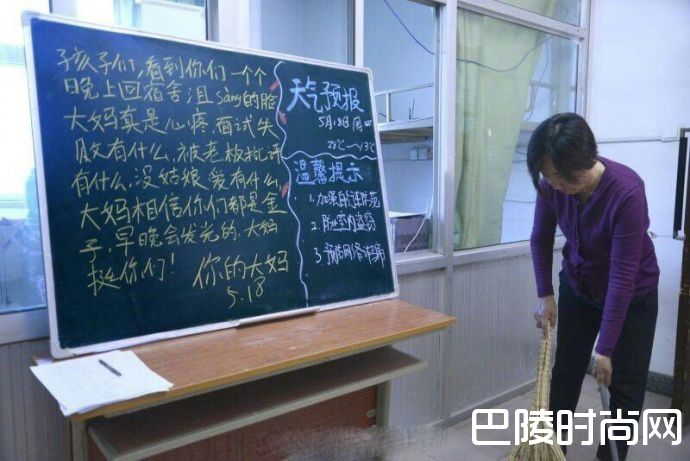 孩子们,看到你们一个个
晚上回宿舍沮sàng的脸
大妈真是心疼.面试失
败有什么.被老板批评
有什么.没姑娘爱有什么.
大妈相信你们都是金
子.早晚会发光的.大妈
挺你们!
你的大妈
5.18
天气预报
5月18日 周四
温馨提示
1.加强自行车防范
2.防止室内盗窃
3.预防网络诈骗
巴陵时尚网